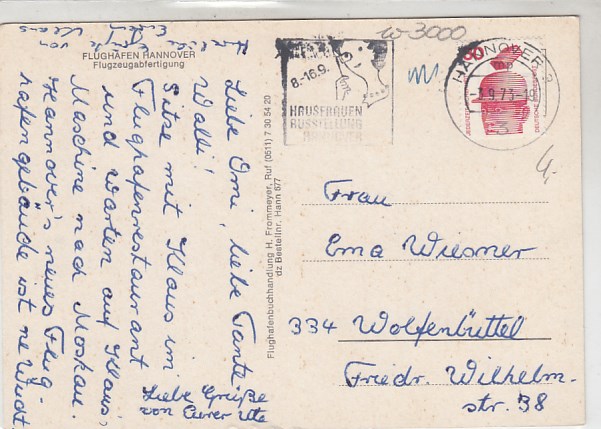 FLUGHAFEN HANNOVER
Flugzeugabfertigung
Liebe Omi, liebe Tante
Waldi!
Sitze mit Klaus im
Flughafenrestaurant
und warten auf Klaus',
Maschine nach Moskau.
Hannover's neues Flug-
hafengebäude ist ne Wucht
Liebe Grüße
von Eurer Ute
Herzliche Grüße von
Eurem Klaus
Flughafenbuchhandlung H. Frommeyer, Ruf (0511) 7 30 54 20
dz Bestellnr. Hann 6/7
w 3000
8.-16.9.
HAUSFRAUEN
AUSSTELLUNG
HANNOVER
HANNOVER
-7.9.73-18
3
DEUTSCHE
4,-
Frau
Ema Wiesner
334 Wolfenbüttel
Friedr. Wilhelm-
str. 38